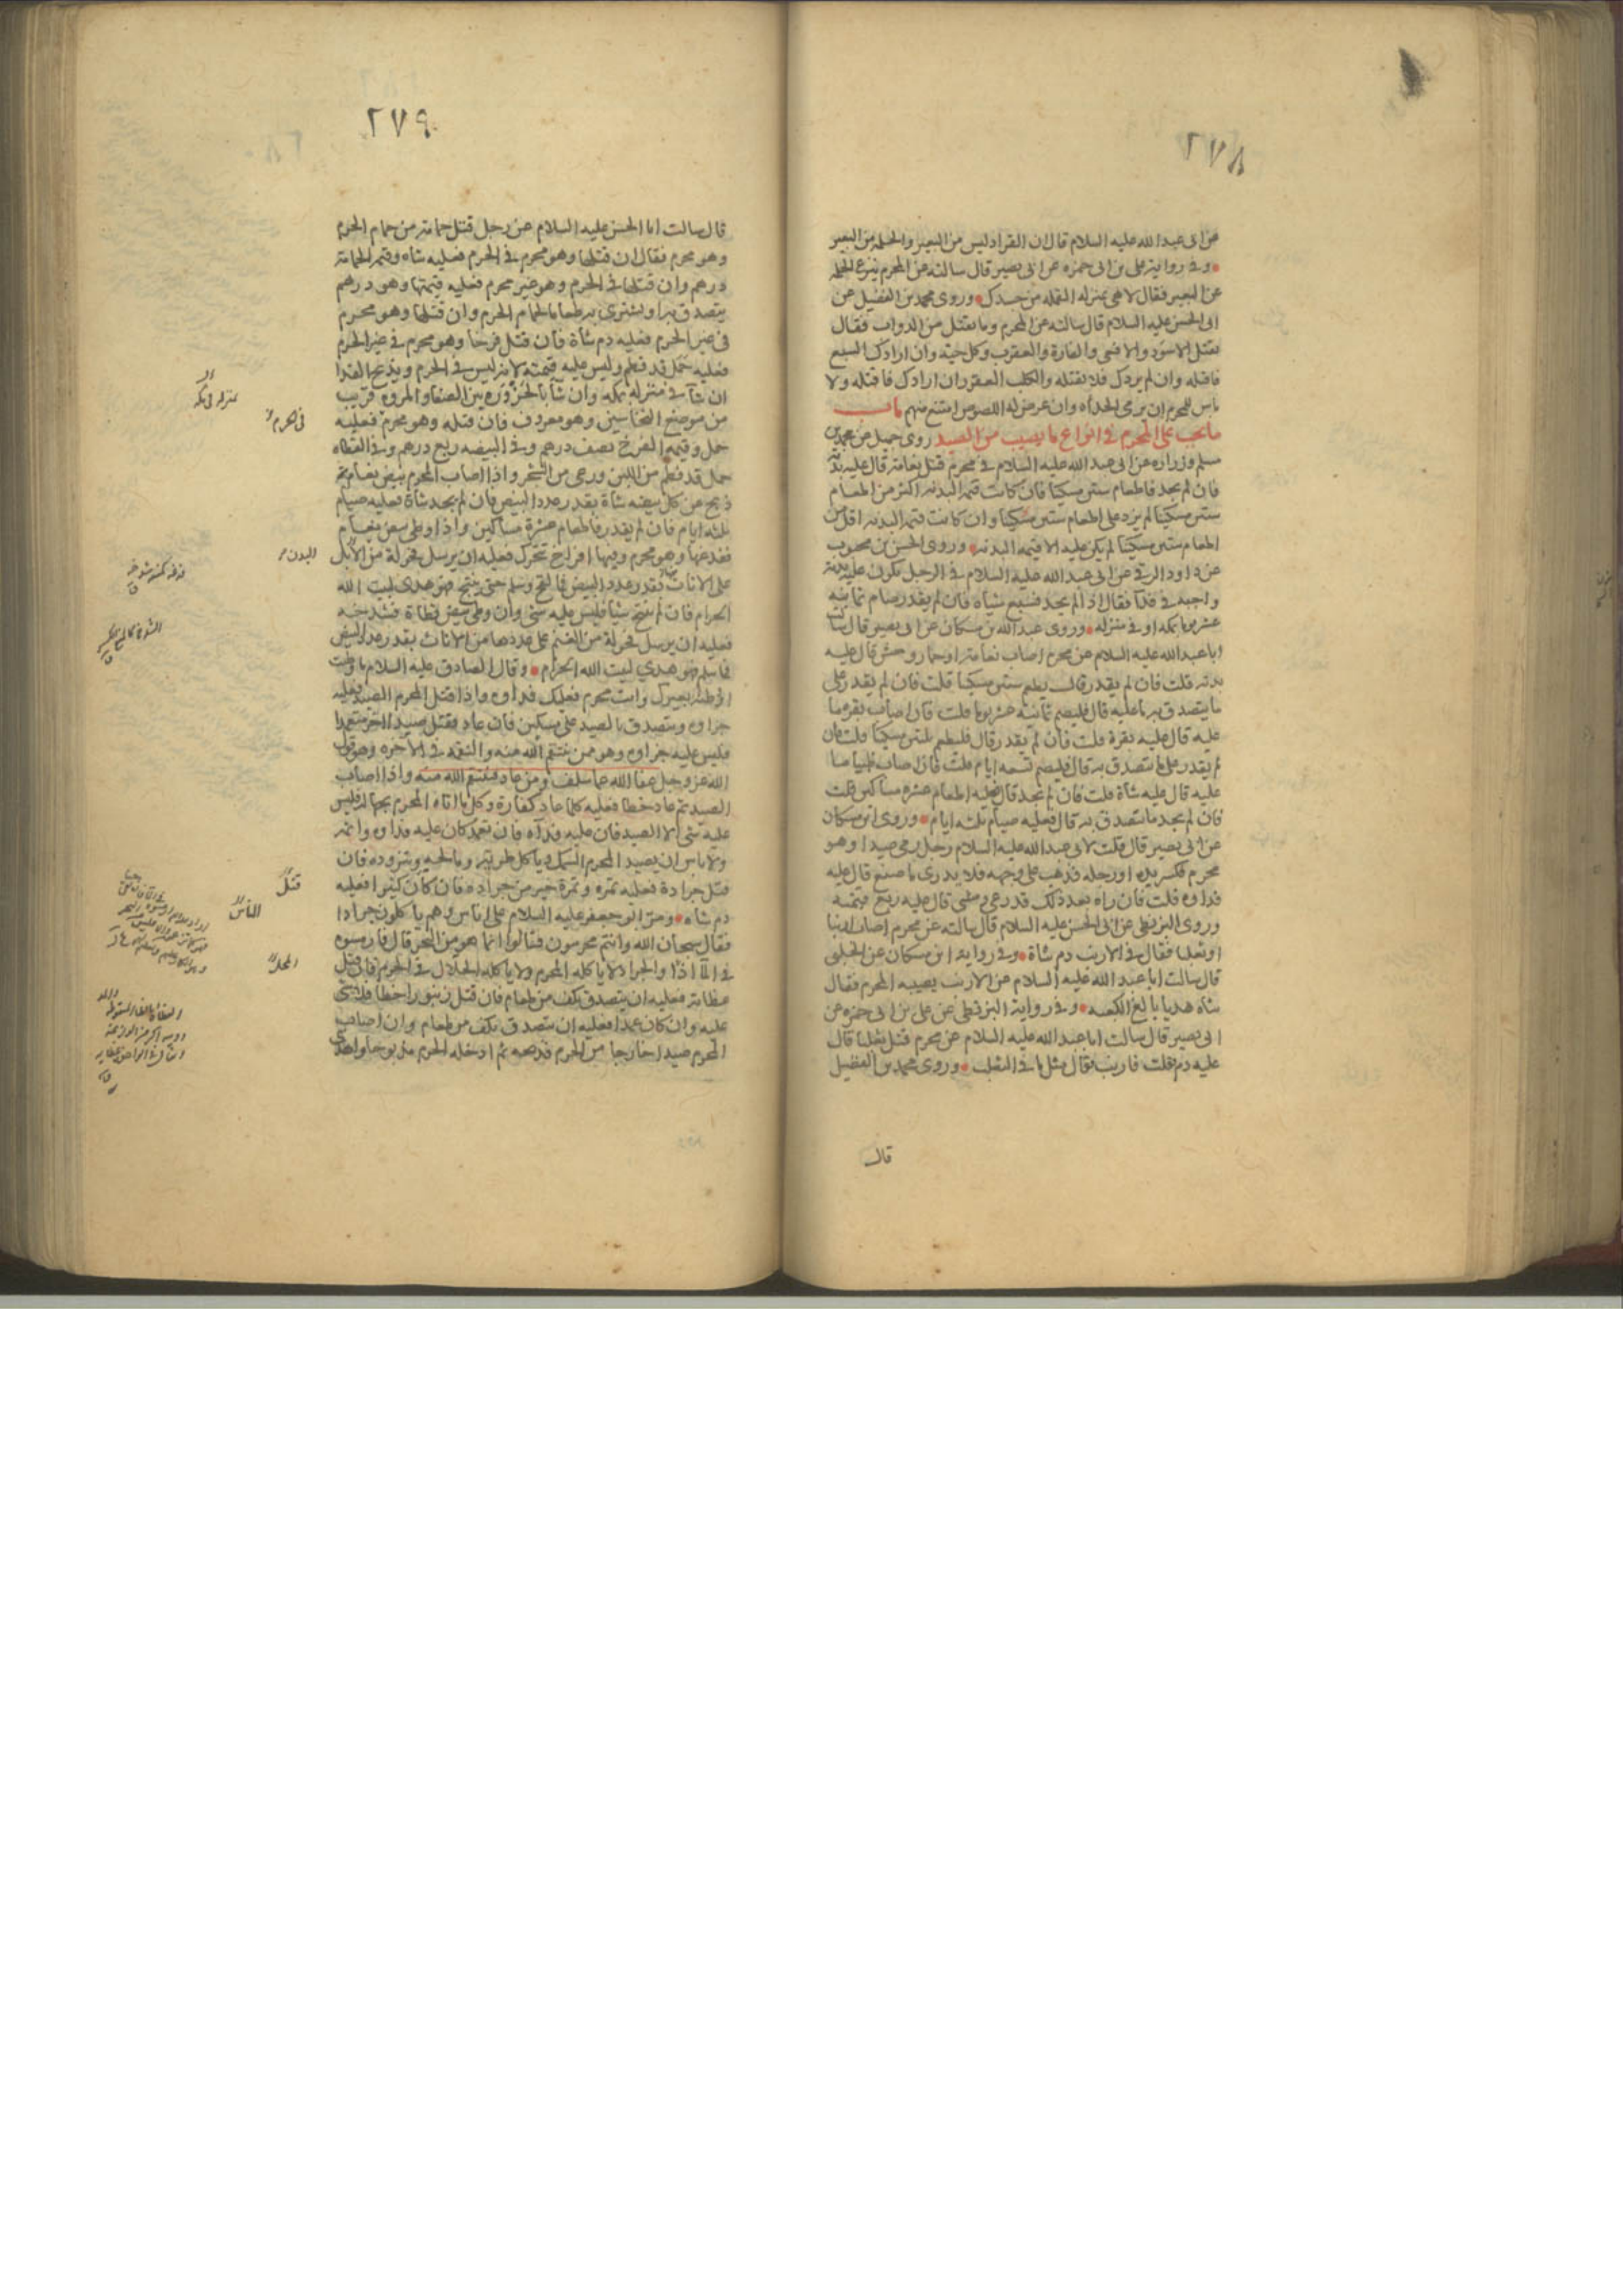 ٢٧٨
عن ابى عبد الله عليه السلام قال ان القراد ليس من البعير والحلمة من البعير
وفى رواية على بن ابى حمزه عن ابى بصير قال سالته عن المحرم ينزع الحلمة
عن البعير فقال لا هى بمنزله القمله من جسدك وروى محمد بن الفضيل عن
ابى الحسن عليه السلام قال سالته عن المحرم وما يقتل من الدواب فقال
يقتل الاسود والافعى والفارة والعقرب وكل حية وان ارادك السبع
فاقتله وان لم يردك فلا تقتله والكلب العقور ان ارادك فاقتله ولا
باس للمحرم ان يرمى الحداه وان عرض له اللصوص امتنع منهم باب
ما يجب على المحرم فى انواع ما يصيب من الصيد روى جميل عن محمد بن
مسلم وزراره عن ابى عبد الله عليه السلام فى محرم قتل نعامة قال عليه بدنة
فان لم يجد فاطعام ستين مسكينا فان كانت قيمة البدنه اكثر من اطعام
ستين مسكينا لم يزد على اطعام ستين مسكينا وان كانت قيمة البدنه اقل من
اطعام ستين مسكينا لم يكن عليه الا قيمة البدنه وروى الحسن بن محبوب
عن داود الرقى عن ابى عبد الله عليه السلام فى الرجل يكون عليه بدنة
واجبه فى فدآ فقال اذا لم يجد فسبع شياه فان لم يقدر صام ثمانيه
عشر يوما بمكه او فى منزله وروى عبد الله بن مسكان عن ابى بصير قال سالت
ابا عبد الله عليه السلام عن محرم اصاب نعامة او حمار وحش قال عليه
بدنه قلت فان لم يقدر قال يطعم ستين مسكينا قلت فان لم يقدر على
ما يتصدق به ما عليه قال فليصم ثمانيه عشر يوما قلت فان اصاب بقره ما
عليه قال عليه بقرة قلت فان لم يقدر قال فليطعم ثلثين مسكينا قلت فان
لم يقدر على ما يتصدق به قال فليصم تسعه ايام قلت فان اصاب ظبيا ما
عليه قال عليه شاة قلت فان لم يجد قال فعليه اطعام عشره مساكين قلت
فان لم يجد ما يتصدق به قال فعليه صيام ثلثه ايام وروى ابن مسكان
عن ابى بصير قال قلت لابى عبد الله عليه السلام رجل رمى صيدا وهو
محرم فكسر يده او رجله فذهب على وجهه فلا يدرى ما صنع قال عليه
فداوه قلت فان راه بعد ذلك قد رعى ومشى قال عليه ربع قيمته
وروى البزنطى عن ابى الحسن عليه السلام قال سالته عن محرم اصاب ارنبا
او ثعلبا فقال فى الارنب دم شاة وفى رواية ابن مسكان عن الحلبى
قال سالت ابا عبد الله عليه السلام عن الارنب يصيبه المحرم فقال
شاه هديا بالغ الكعبه وفى رواية البزنطى عن على بن ابى حمزه عن
ابى بصير قال سالت ابا عبد الله عليه السلام عن محرم قتل ثعلبا قال
عليه دم قلت فارنب فقال مثل ما فى الثعلب وروى محمد بن الفضيل
قال
٢٧٩
قال سالت ابا الحسن عليه السلام عن رجل قتل حمامة من حمام الحرم
وهو محرم فقال ان قتلها وهو محرم فى الحرم فعليه شاه وقيمة الحمامة
درهم وان قتلها فى الحرم وهو غير محرم فعليه قيمتها وهو درهم
يتصدق به او يشترى به طعاما لحمام الحرم وان قتلها وهو محرم
فى غير الحرم فعليه دم شاة فان قتل فرخا وهو محرم فى غير الحرم
فعليه حمل قد فطم وليس عليه قيمته لانه ليس فى الحرم ويذبح الفدا
ان شآ فى منزله بمكه وان شآ بالحزوره بين الصفا والمروه قريب
من موضع النخاسين وهو معروف فان قتله وهو محرم فعليه
حمل وقيمة الفرخ نصف درهم وفى البيضه ربع درهم وفى القطاه
حمل قد فطم من اللبن ورعى من الشجر واذا اصاب المحرم بيض نعام
ذبح عن كل بيضه شاة بقدر عدد البيض فان لم يجد شاة فعليه صيام
ثلثه ايام فان لم يقدر فاطعام عشرة مساكين واذا وطى بيض نعام
ففدغها وهو محرم وفيها افراخ تتحرك فعليه ان يرسل فحولة من الابل
على الاناث بقدر عدد البيض فما لقح وسلم حتى ينتج فهو هدى لبيت الله
الحرام فان لم ينتج شيا فليس عليه شى وان وطى بيض قطاة فشدخه
فعليه ان يرسل فحولة من الغنم على عددها من الاناث بقدر عدد البيض
فما سلم فهو هدى لبيت الله الحرام وقال الصادق عليه السلام ما وطئت
او وطئه بعيرك وانت محرم فعليك فداوه واذا قتل المحرم الصيد فعليه
جزاوه ويتصدق بالصيد على مسكين فان عاد فقتل صيدا اخر متعمدا
فليس عليه جزاوه وهو ممن ينتقم الله منه والنقمه فى الاخره وهو قول
الله عز وجل عفا الله عما سلف ومن عاد فينتقم الله منه واذا اصاب
الصيد ثم عاد خطا فعليه كلما عاد كفارة وكل ما اتاه المحرم بجهالة فليس
عليه شى الا الصيد فان عليه فدآه فان تعمد كان عليه فداوه واثمه
ولا باس ان يصيد المحرم السمك وياكل طريه ومالحه ويتزوده فان
قتل جرادة فعليه تمره وتمرة خير من جراده فان كان كثيرا فعليه
دم شاه ومر ابو جعفر عليه السلام على اناس وهم ياكلون جرادا
فقال سبحان الله وانتم محرمون فقالوا انما هو من البحر قال فارمسوه
فى المآ اذا والجراد لا ياكله المحرم ولا ياكله الحلال فى الحرم فان قتل
عظاية فعليه ان يتصدق بكف من طعام فان قتل زنبورا خطا فلا شى
عليه وان كان عمدا فعليه ان يتصدق بكف من طعام وان اصاب
المحرم صيدا خارجا من الحرم فذبحه ثم ادخله الحرم مذبوحا واهدى
البدن
قتل
الناس
المحل